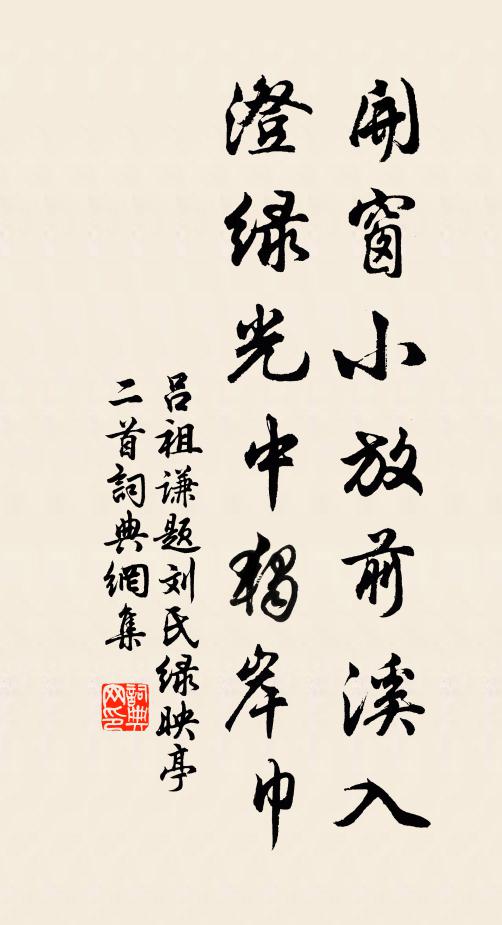 開窗小放前溪入
澄绿光中独岸巾
吕祖谦题刘氏绿映亭
二首詞典網集
詞典
网印